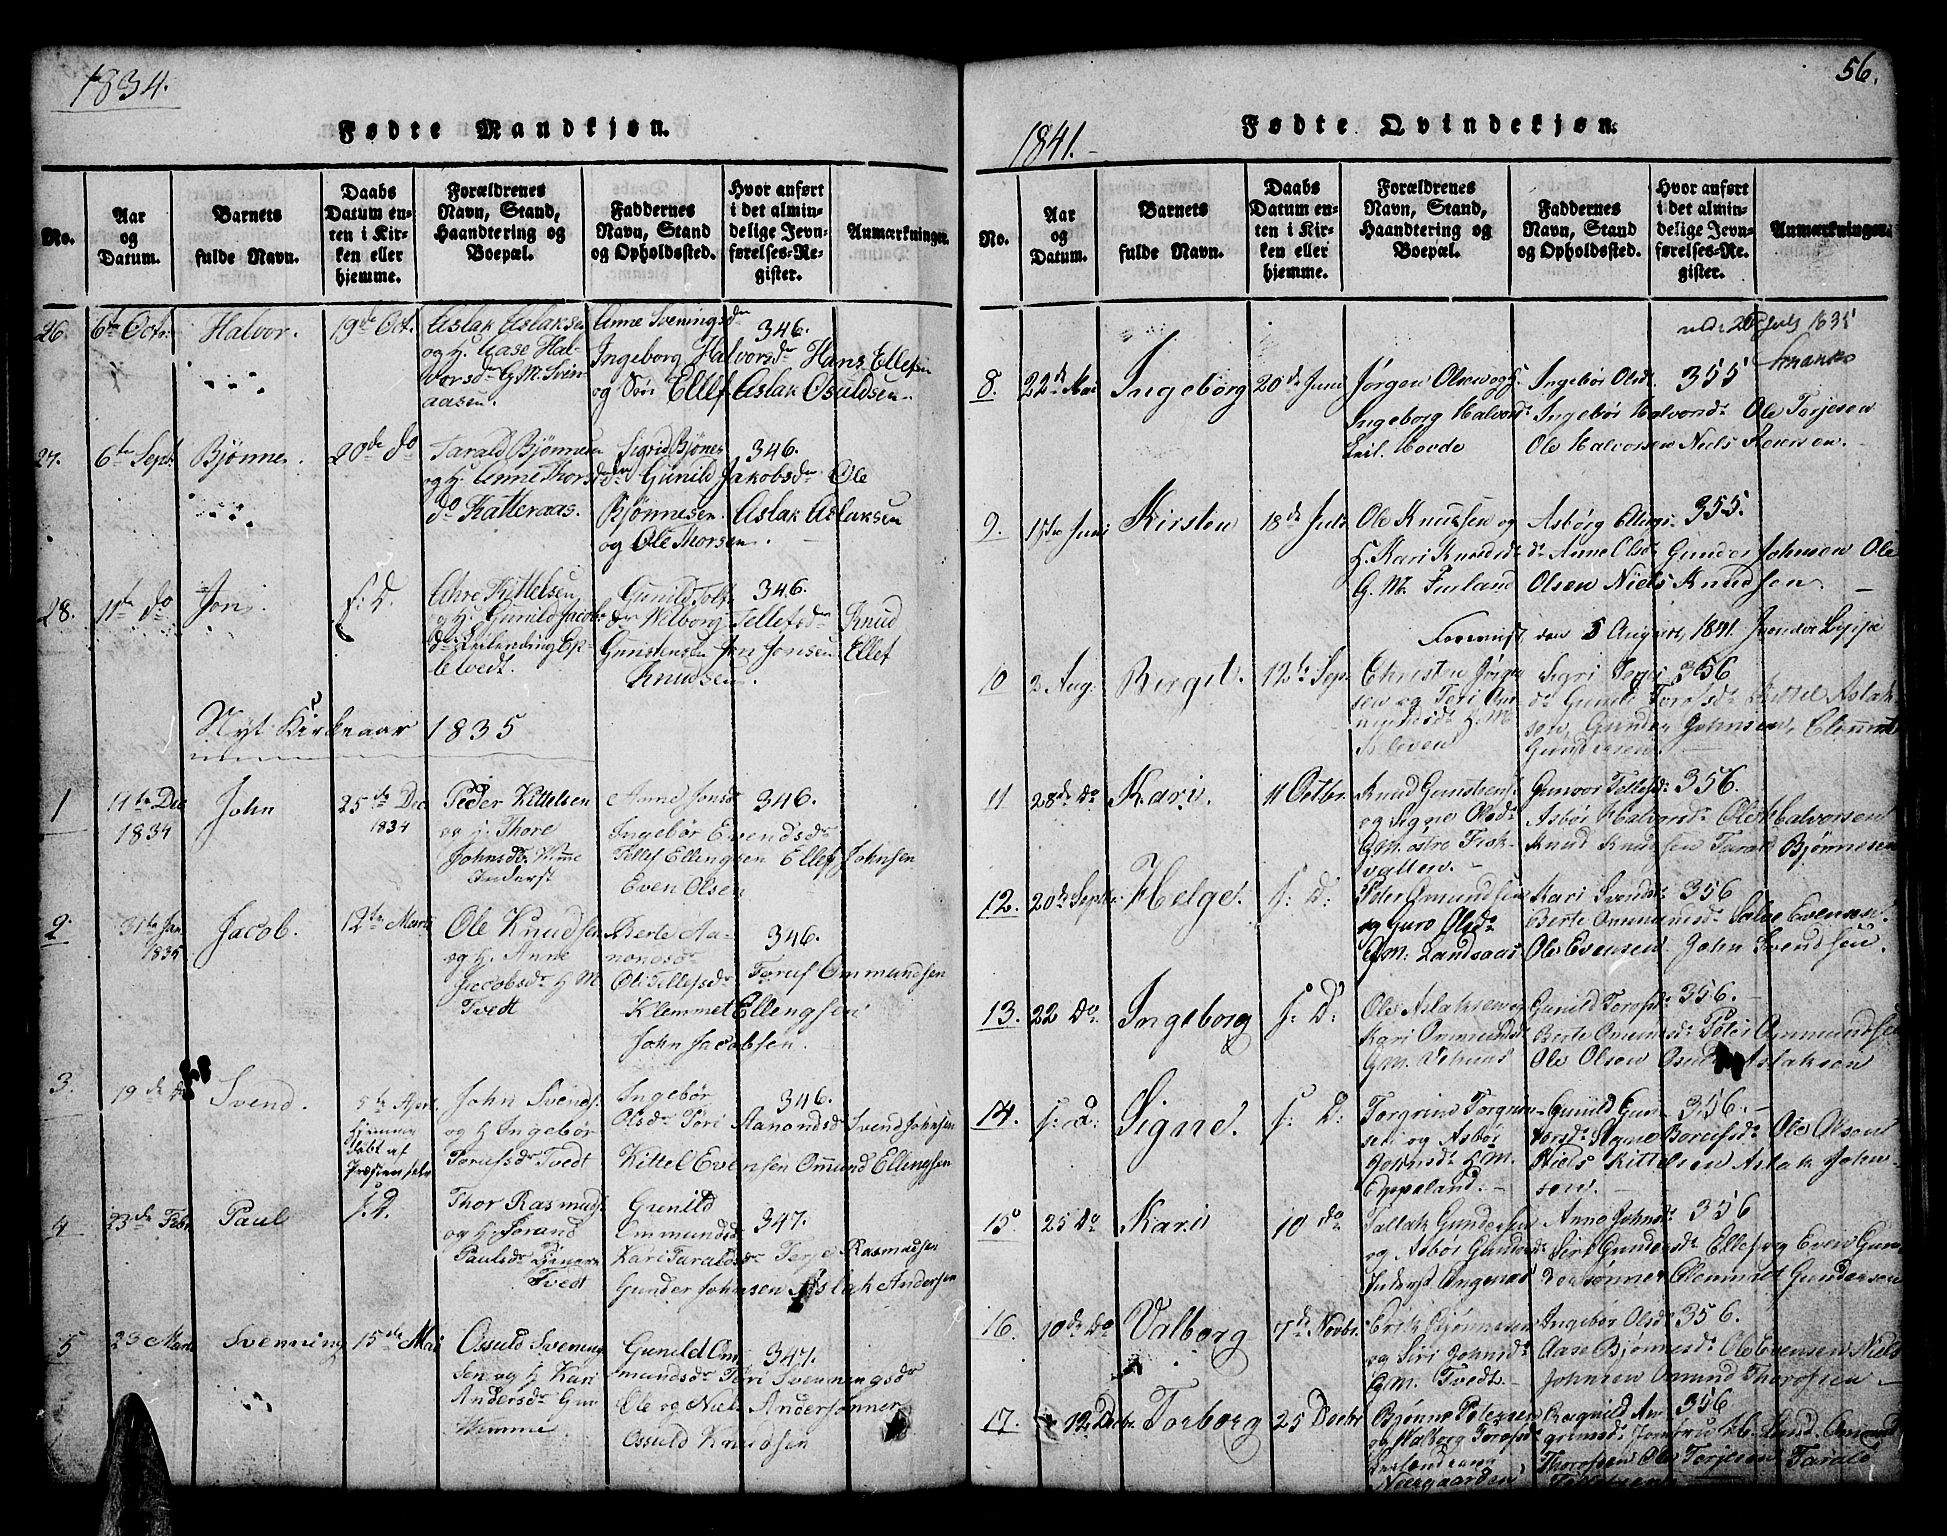 1834.
Fødte Mandkjøn.
No.
Aar
og
Datum.
Barnets
fulde Navn.
Daabs
Datum en-
ten i Kir-
ken eller
hjemme.
Forældrenes
Navn, Stand,
Haandtering og
Boepæl.
Faddernes
Navn, Stand
og Opholdssted.
Hvor anført
i det almin-
delige Jevn-
førelses-Re-
gister.
Anmærkninger.
26. 6te Octr. Halvor. 19de Oct. Aslak Aslaksen
og H. Aase Hal-
vorsdr G.M. Svin-
aasen.
Anne Sveningsdr 346.
Ingeborg Halvorsdr Hans Ellefsen
og Søn Ellef Aslak Osuldsen.
27. 6te Septr Bjønne. 20de do Tarald Bjønnesen
og H. Anne Thors
do Katteraas.
Sigrid Bjønes 346.
Gunild Jakobsdr Ole
Bjønnesen. Aslak Aslaksen
og Ole Thorsen.
28. 11te do Jon. f. D. Kittelsen
og H. Gunild Jacobs
Gunild Tolf 346.
Welborg Tellefsdr Knud
Gunstensen Jon Jonsen Ellef
Knudsen.
Nyt Kirkeaar 1835
1 11te Dec 1834 John 25de Dec 1834 Peder Kittelsen
og H. Thore
Johnsdr Vimme
Inderst
Anne Jonsdr 346.
Ingebør Evendsdr
Tellef Ellengsen Ellef Johnsen
Even Olsen
2 31te Jan 1835 Jacob. 12te Marts Ole Knudsen
og H. Anne
Jacobsdr G M
Tvedt
Berte Aa-
nonsdr 346.
Oli Tellefsdr Toruf Ommundsen
Klemmet Ellengsen
John Jacobsen.
3. 19de Svend. 5te April
Hjemme
døbt af
Præsten selv
John Svends.
og H Ingebør
Torufsdr Tvedt
Ingebør 346.
Olsdr Tori Aanondsdr Svend Johnsen
Kittel Evensen Omund Ellengsen
4 23de Febr Paul f. D. Thor Rasmuss.
og H. Jorand
Paulsdr
Tvedt
Gunild 347.
Ommundsd
Kari Taraldsdr Terje Rasmussen
Gunder Johnsen Aslak Andersen
5 23 Marts Svenning 15de Mai Ossuld Svening
sen og H Kari
Andersdr Gm
Vimme.
Gunild Om 347.
mundsdr Tori Svenningsdr
Ole og Niels Andersønner
Ossuld Knudsen
56.
1841.
Fødte Qvindekjøn.
No.
Aar
og
Datum.
Barnets
fulde Navn.
Daabs
Datum en-
ten i Kir-
ken eller
hjemme.
Forældrenes
Navn, Stand,
Haandtering og
Boepæl.
Faddernes
Navn, Stand
og Opholdssted.
Hvor anført
i det almin-
delige Jevn-
førelses-Re-
gister.
Anmærkninger.
8. 22de Mai Ingeborg 20de Juni Jørgen Olsen og H.
Ingeborg Halvorsdr
Hovde
Ingebør Olsdr 355
Ingebør Halvorsdr Ole Terjesen
Ole Halvorsen Niels Reiersen.
9. 15de Juni Kirsten 18de Juli Ole Knudsen og
H. Kari Knudsdr
G.M. Furland
Asbørg Ellings- 355.
dr Anne Olsdr Gunder Johnsen Ole
Olsen Niels Knudsen
den 5 August 1841.
10 2 Aug. Birgit. 12te Sept. Christen Jørgen
sen og Tori
G M
Kleven
Sigri Terjes 356
dr Gunild Torafsdr Kittel Aslak-
sen, Gunder Johnsen, Clemmet
Gundersen
11 28de do Kari. 11 Octbr. Knud Gunstens:
og Signe Olsdr
G.M. østre Fisk-
vatten.
Gunvor Tellefsdr 356.
Asbør Halvorsdr Ole Halvorsen
Knud Knudsen Tarald Bjønnesen
12. 20de Septbr Helge. f: D: Peter Omundsen
og Guro Olsdr
G.M. Landsaas
Kari Svendsdr 356
Berte Ommundsdr Salve Evensen
Ole Evensen John Svendsen.
13. 22 do Ingeborg f: D: Ole Aslaksen og
Kari Ommundsdr
G.M.
Gunild Torafsdr 356.
Berte Ommundsdr Peter Ommundsen
Ole Olsen Osuld Aslaksen
14. f: D: Signe. f: D: Torgrim Torgrim
sen og Asbør
Johnsdr G.M.
Eppeland.
Gunild Gun- 356.
dersdr Signe Torufsdr Ole Olsen
Niels Kittelsen Aslak John-
sen.
15 25 do Kari 10 do Tallak Gundersen
og Asbør Gundersd
Inderst Angenæs
Anne Johnsdr 356
Siri Gundersdr Ellef og Even Gun-
dersønner Clemmet Gundersen
16. 10de do Valborg 7de Novbr. Erik Bjønnesen
og Siri Johnsdr
G.M. Tvedt.
Ingebør Olsdr 356.
Aase Bjønnesdr Ole Evensen Niels
Johnsen Omund Thorersen
17. 12 Decbr. Torborg 25 Decbr Bjønne Petersen
og Walborg Torafsdr
Neesgaarden
Ragnild An- 356
grimsd: Jomfru M. Lund, Omund
Thorersen Ole Terjesen Tarald